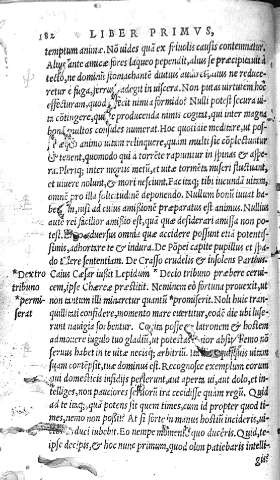 182 LIBER PRIMVS,
temptum animæ. Nõ uides quā ex friuolis causis contemnatur.
Alius ante amicæ fores laqueo pependit, alius se præcipitauit à
tecto, ne dominū stomachantē diutius audiret: alius ne reduce-
retur è fuga, ferrum adegit in uiscera. Non putas uirtutem hoc
effecturam, quod efficit nimia formido? Nulli potest secura ui-
ta cōtingere, qui de producenda nimis cogitat, qui inter magna
bona multos consules numerat. Hoc quotidie meditare, ut pos-
sis æquo animo uitam relinquere, quam multi sic cōplectuntur
& tenent, quomodo qui à torrēte rapiuntur in spinas & aspe-
ra. Pleriq; inter mortis metū, et uitæ tormēta miseri fluctuant,
et uiuere nolunt, & mori nesciunt. Fac itaq; tibi iucundā uitam,
omnē pro illa solicitudinē deponendo. Nullum bonū iuuat ha-
bētem, nisi ad cuius amissionē præparatus est animus. Nullius
autē rei facilior amissio est, quā quæ desiderari amissa non po-
test. Ergo aduersus omnia quæ accidere possunt etiā potentis-
simis, adhortare te & indura. De Pōpei capite pupillus et spa-
do tulere sententiam. De Crasso crudelis & insolens Parthus.
*Dextro Caius Cæsar iußit Lepidum * Decio tribuno præbere cerui-
tribuno cem, ipse Chæreæ præstitit. Neminem eò fortuna prouexit, ut
permi- non tantum illi minaretur quantū * promiserit. Noli huic tran-
serat quillitati confidere, momento mare euertitur, eodē die ubi luse-
runt nauigia sorbentur. Cogita posse & latronem & hostem
admouere iugulo tuo gladiū, ut potestas maior absit, Nemo nō
seruus habet in te uitæ necisq; arbitriū. Ita dico, quisquis uitam
suam contēpsit, tuæ dominus est. Recognosce exemplum eorum
qui domesticis insidijs perierunt, aut aperta ui, aut dolo, et in-
telliges, non pauciores seruorū ira cecidisse quàm regū. Quid
ad te itaq; quā potens sit quem times, cum id propter quod ti-
mes, nemo non poßit? At si forte in manus hostiū incideris, ui-
ctor te duci iubebit. Eo nempe quo duceris. Quid, te-
ipse decipis, & hoc nunc primum, quod olim patiebaris intelli-
gis?